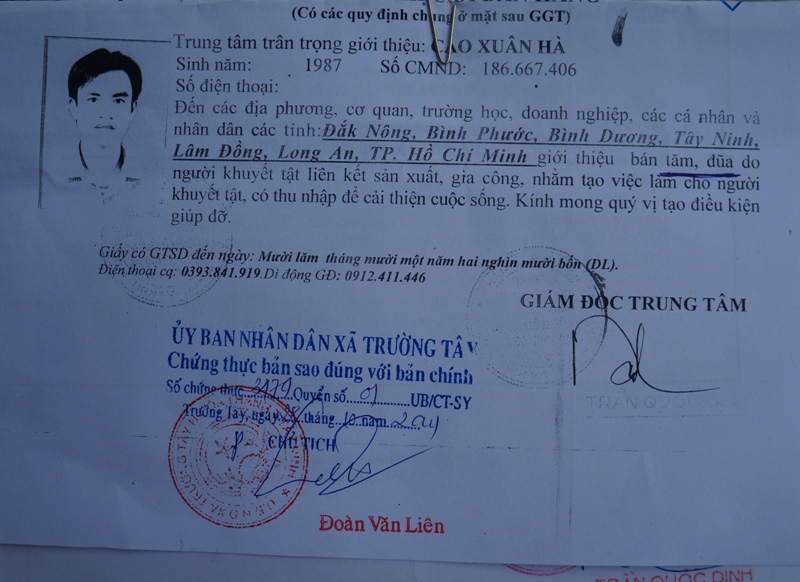 (Có các quy định chung ở mặt sau GGT)
Trung tâm trân trọng giới thiệu: CAO XUÂN HÀ
Sinh năm: 1987 Số CMND: 186.667.406
Số điện thoại:
Đến các địa phương, cơ quan, trường học, doanh nghiệp, các cá nhân và
nhân dân các tỉnh:Đắk Nông, Bình Phước, Bình Dương, Tây Ninh,
Lâm Đồng, Long An, TP. Hồ Chí Minh giới thiệu bán tăm, đũa do
người khuyết tật liên kết sản xuất, gia công, nhằm tạo việc làm cho người
khuyết tật, có thu nhập để cải thiện cuộc sống. Kính mong quý vị tạo điều kiện
giúp đỡ.
Giấy có GTSD đến ngày: Mười lăm tháng mười một năm hai nghìn mười bốn (DL).
Điện thoại cq: 0393.841.919.Di động GĐ: 0912.411.446
GIÁM ĐỐC TRUNG TÂM
ỦY BAN NHÂN DÂN XÃ TRƯỜNG TÂY
Chứng thực bản sao đúng với bản chính
Số chứng thực 3179 Quyển số 01 UB/CT-SY
Trường Tây, ngày tháng 10 năm 2014
CHỦ TỊCH
TRẦN QUỐC
Đoàn Văn Liên
TRẦN QUỐC ĐỊNH